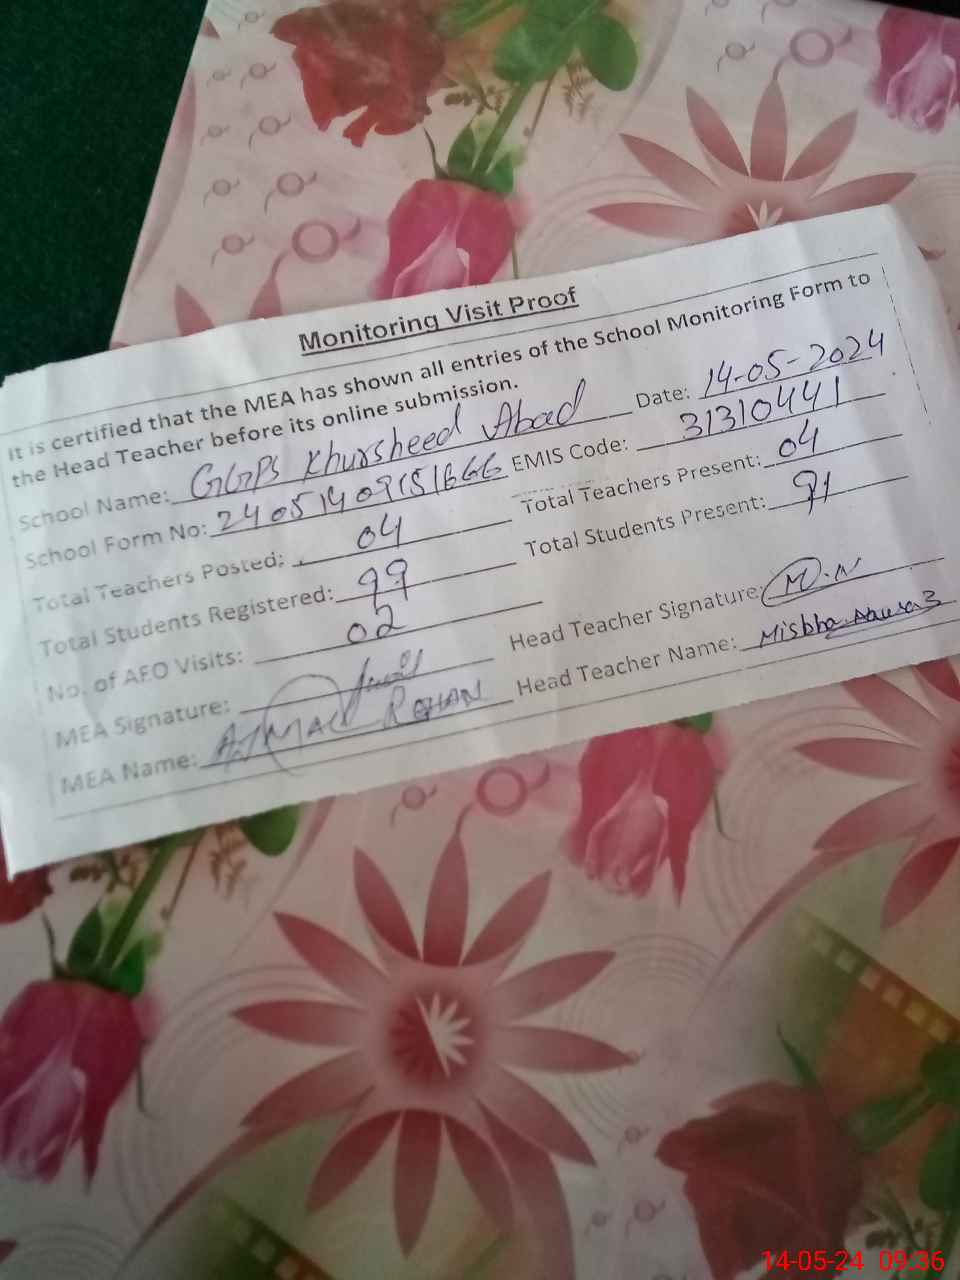 Monitoring Visit Proof
It is certified that the MEA has shown all entries of the School Monitoring Form to
the Head Teacher before its online submission.
School Name: GGPS Khursheed Abad Date: 14-05-2024
School Form No: 24051409151666 EMIS Code: 31310441
Total Teachers Posted: 04 Total Teachers Present: 04
Total Students Registered: 99 Total Students Present: 91
No. of AEO Visits: 02
MEA Signature: Head Teacher Signature: M.N
MEA Name: AJMAL REHAN Head Teacher Name: Misbha
14-05-24 09:36